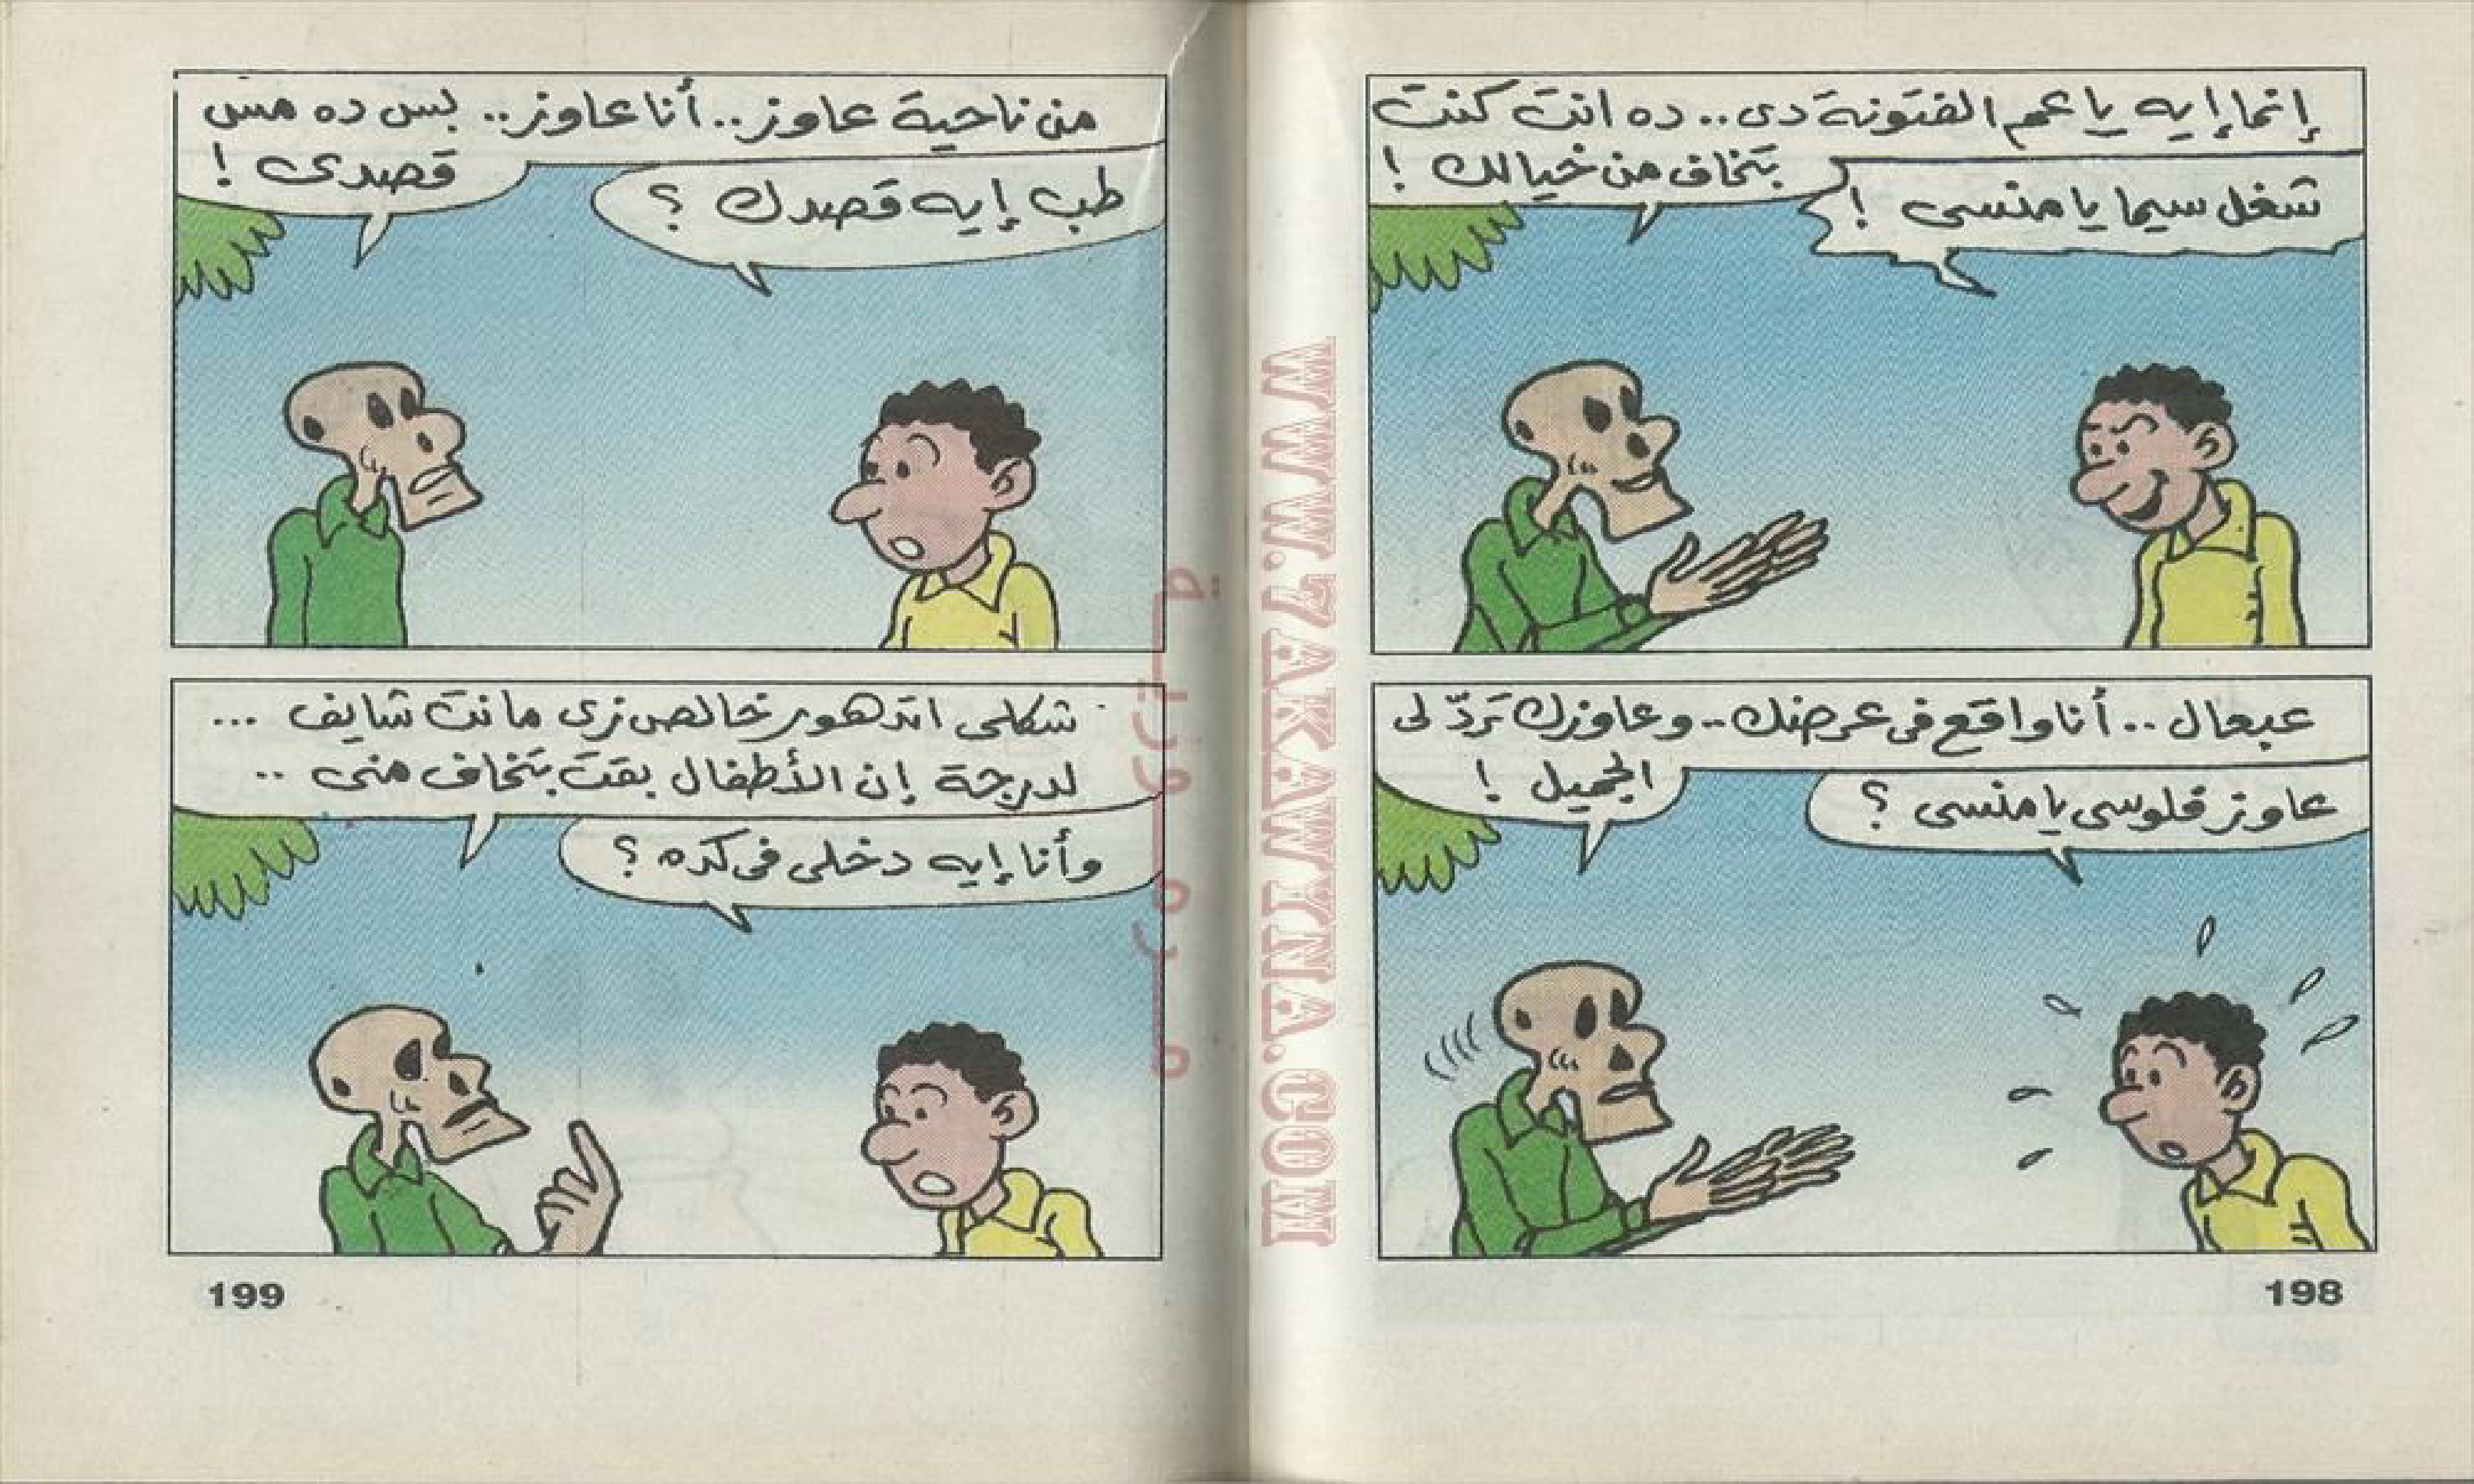 إنما إيه يا عم الفتونة دى.. ده انت كنت
بتخاف من خيالك !
شغل سيما يا منسى !
عبعال .. أنا واقع فى عرضك .. وعاوزك تردّ لى
الجميل !
عاوز فلوس يا منسى ؟
198
من ناحية عاوز.. أنا عاوز.. بس ده مش
قصدى !
طب إيه قصدك ؟
شكلى اتدهور خالص زى مانت شايف ...
لدرجة إن الأطفال بقت بتخاف منى ..
وأنا إيه دخلى فى كده ؟
199
WWW.7AKAWYNA.COM